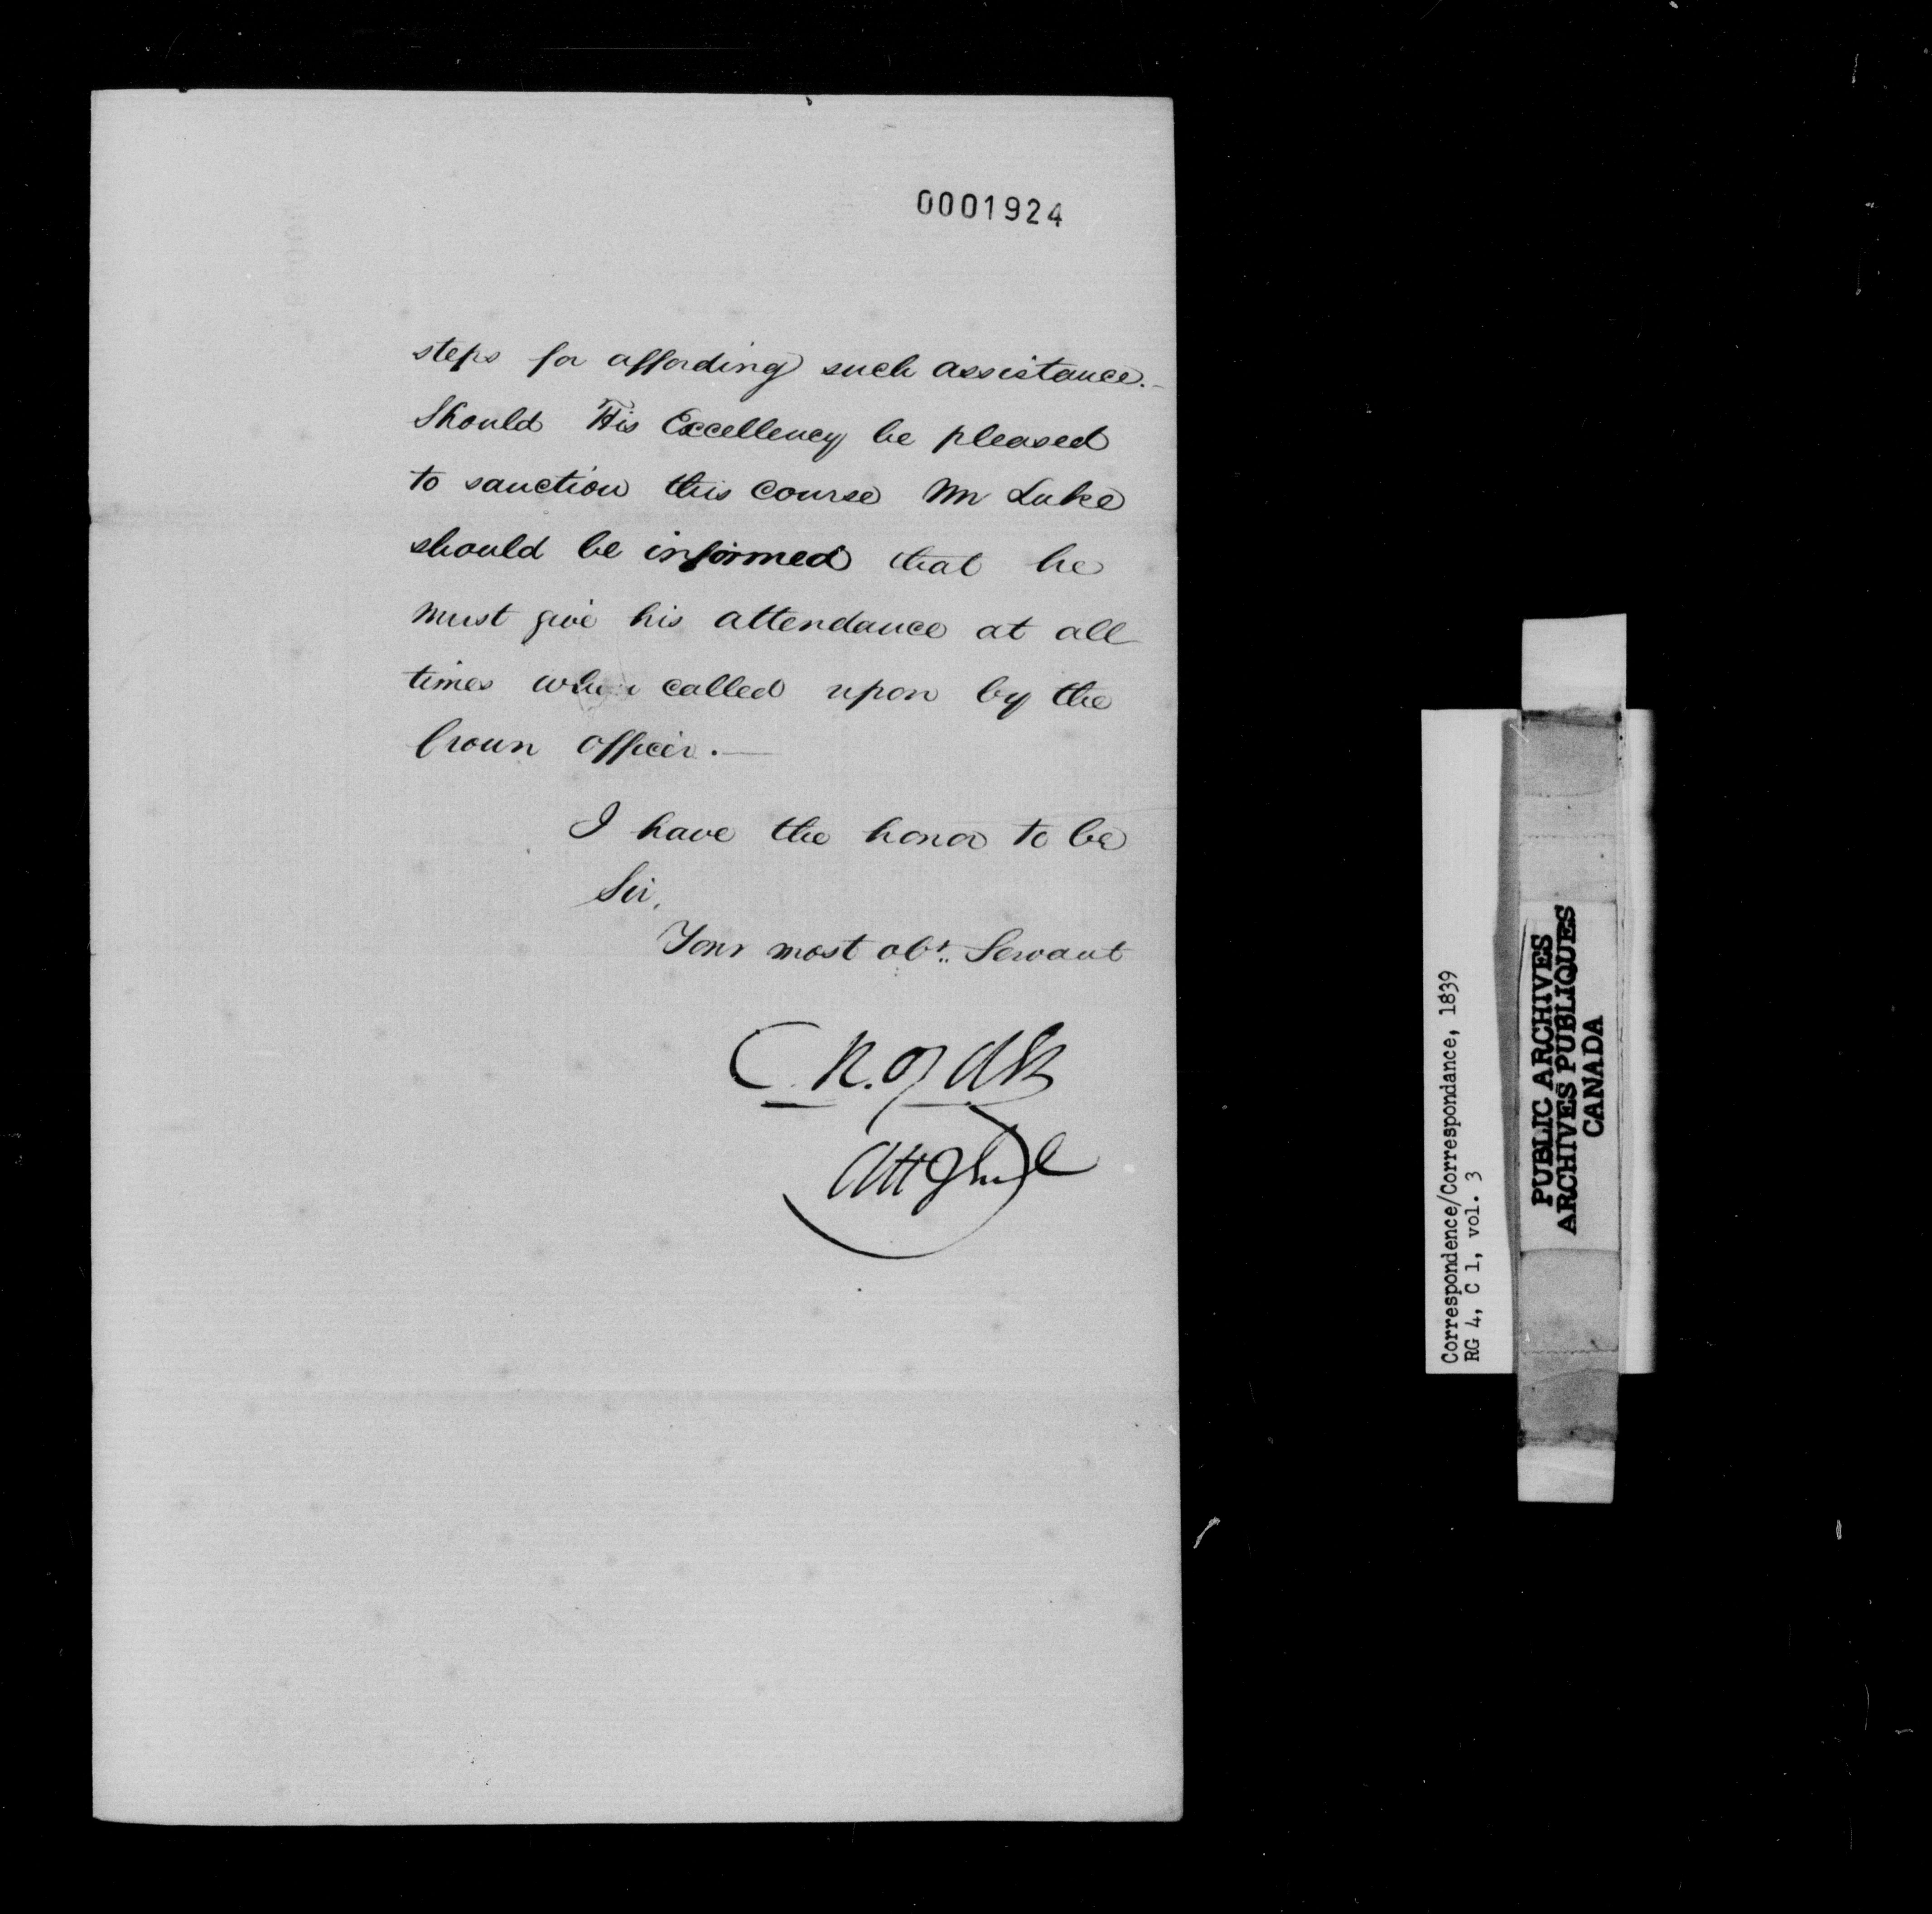 0001924
steps for affording such assistance.—
Should His Excellency be pleased
to sanction this course Mr Luke
should be informed that he
must give his attendance at all
times when called upon by the
Crown Officer.—
I have the honor to be
Sir,
Your most obt. Servant
C. R. Ogden
Att Genl
Correspondence/Correspondance, 1839
RG 4, C 1, vol. 3
PUBLIC ARCHIVES
ARCHIVES PUBLIQUES
CANADA